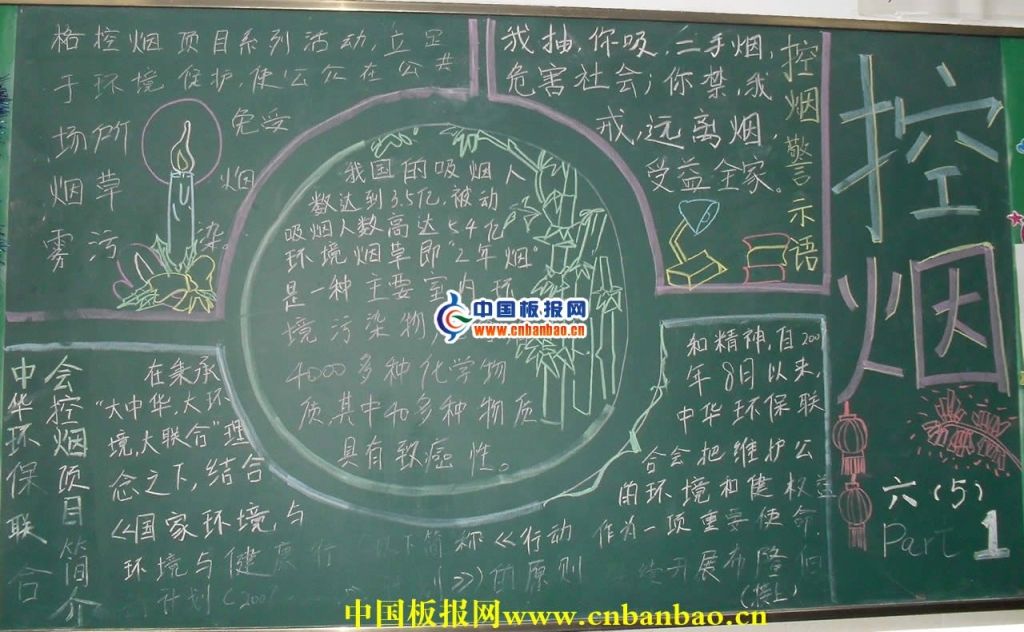 控烟
六(5)
Part 1
格控烟项目系列活动,立足
于环境保护,使公众在公共
场所 免受
烟草 烟
雾污 染。
我抽,你吸,二手烟,
危害社会;你禁,我
戒,远离烟,
受益全家。
控烟警示语
我国的吸烟人
数达到3.5亿,被动
吸烟人数高达5.4亿
环境烟草即"2年烟"
是一种主要室内环
境污染物,
4000多种化学物
质其中40多种物质
具有致癌性。
中国板报网
www.cnbanbao.cn
中华环保联合
会控烟项目简介
在秉承
"大中华,大环
境,大联合"理
念之下,结合
《国家环境,与
环境与健康行
计划(200
以下简称《行动
》)的原则
和精神,自200
年8月以来,
中华环保联
合会把维护公
的环境和健权益
作为一项重要使命,
开展布隆伯
(接上)
中国板报网www.cnbanbao.cn